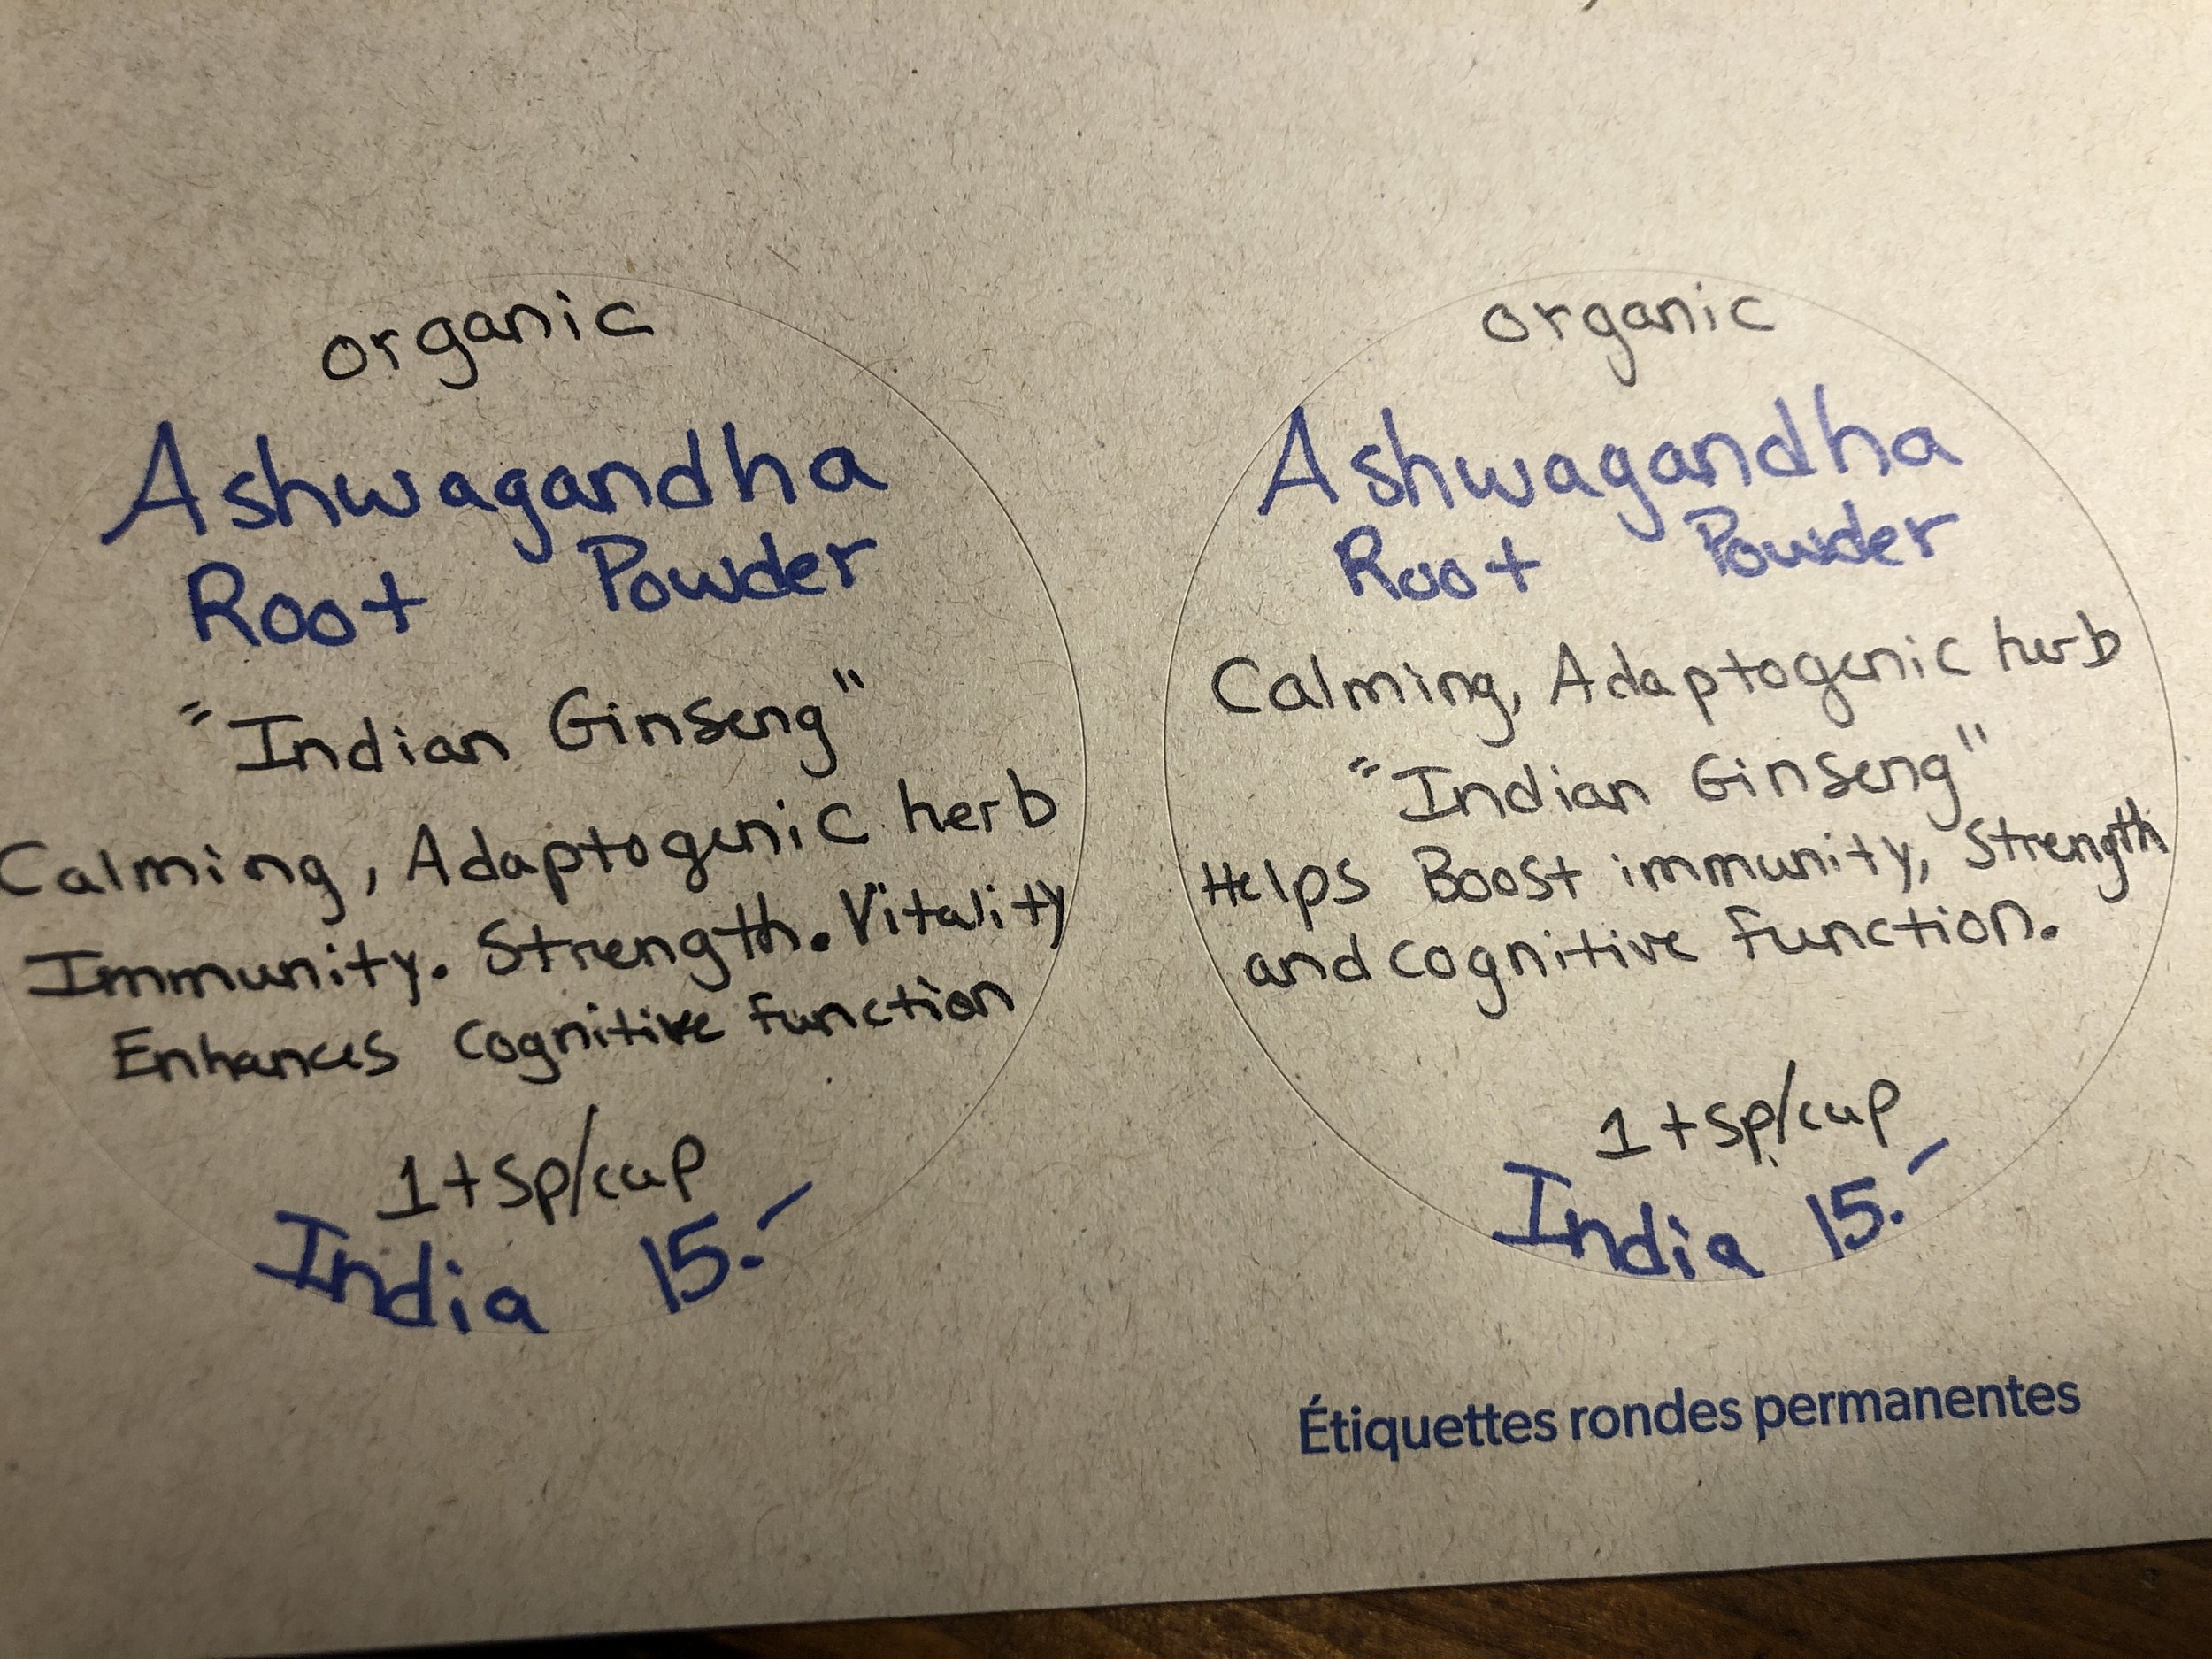 organic
Ashwagandha
Root Powder
"Indian Ginseng"
Calming, Adaptogenic herb
Immunity. Strength. Vitality
Enhances cognitive function
1 tsp/cup
India 15.-
organic
Ashwagandha
Root Powder
Calming, Adaptogenic herb
"Indian Ginseng"
Helps Boost immunity, Strength
and cognitive function.
1 tsp/cup
India 15.-
Étiquettes rondes permanentes